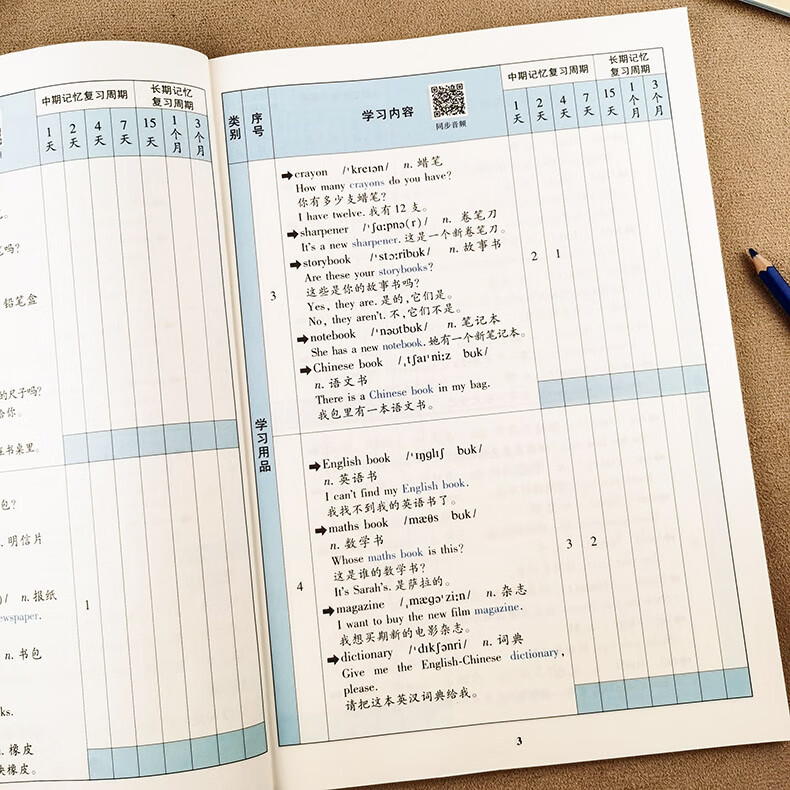 中期记忆复习周期
长期记忆
复习周期
1天
2天
4天
7天
15天
1个月
3个月
吗?
铅笔盒
的尺子吗?
给你。
书桌里。
包?
明信片
n. 报纸
1
n. 书包
ks.
橡皮
橡皮。
类别
序号
学习内容
同步音频
中期记忆复习周期
长期记忆
复习周期
1天
2天
4天
7天
15天
1个月
3个月
学习用品
3
crayon /ˈkreɪən/ n. 蜡笔
How many crayons do you have?
你有多少支蜡笔?
I have twelve. 我有12支。
sharpener /ˈʃɑːpnə(r)/ n. 卷笔刀
It's a new sharpener. 这是一个新卷笔刀。
storybook /ˈstɔːribʊk/ n. 故事书
Are these your storybooks?
这些是你的故事书吗?
Yes, they are. 是的,它们是。
No, they aren't. 不,它们不是。
notebook /ˈnəʊtbʊk/ n. 笔记本
She has a new notebook. 她有一个新笔记本。
Chinese book /ˌtʃaɪˈniːz bʊk/
n. 语文书
There is a Chinese book in my bag.
我包里有一本语文书。
2
1
4
English book /ˈɪŋɡlɪʃ bʊk/
n. 英语书
I can't find my English book.
我找不到我的英语书了。
maths book /mæθs bʊk/
n. 数学书
Whose maths book is this?
这是谁的数学书?
It's Sarah's. 是萨拉的。
magazine /ˌmæɡəˈziːn/ n. 杂志
I want to buy the new film magazine.
我想买期新的电影杂志。
dictionary /ˈdɪkʃənri/ n. 词典
Give me the English-Chinese dictionary,
please.
请把这本英汉词典给我。
3
2
3